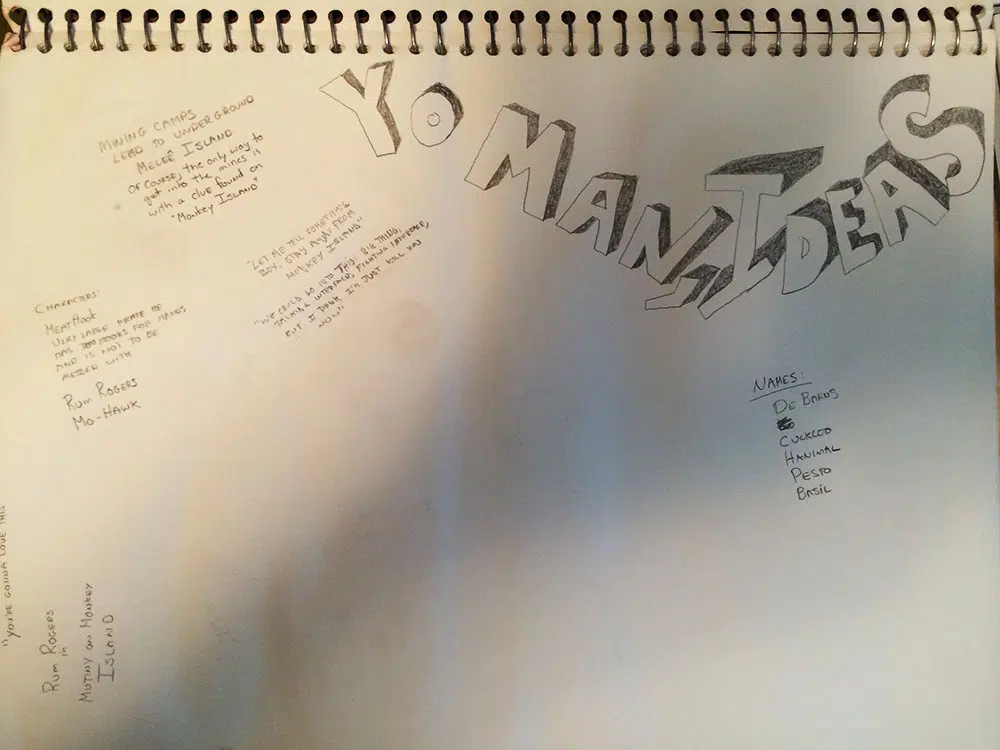 YO MAN, IDEAS
MINING CAMPS
LEAD TO UNDERGROUND
MELEE ISLAND
OF COURSE, the only way to
get into the mines is
with a clue found on
"Monkey Island"
"LET ME TELL SOMETHING
BOY, STAY AWAY FROM
MONKEY ISLAND"
"WE COULD GO INTO THIS BIG THING,
TALKING INTERFACE, FIGHTING INTERFACE,
BUT I THINK I'LL JUST KILL YOU
NOW"
CHARACTERS:
MEATHOOK
VERY LARGE PIRATE HE
HAS HOOKS FOR HANDS
AND IS NOT TO BE
MESSED WITH
RUM ROGERS
MO-HAWK
NAMES:
DE BARUS
CUCKLOO
HANIMAL
PESTO
BASIL
"YOU'RE GONNA LOVE THIS
RUM ROGERS
in
MUTINY ON MONKEY
ISLAND